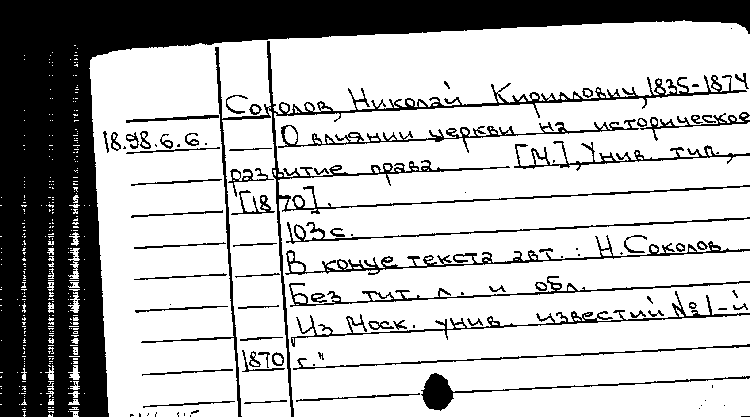 Соколов, Николай Кириллович, 1835-1874
18.98.6.6. О влиянии церкви на историческое
развитие права. [М.], Унив. тип.,
[1870].
103 с.
В конце текста авт.: Н. Соколов.
Без тит. л. и обл.
"Из Моск. унив. известий № 1-й
1870 г."